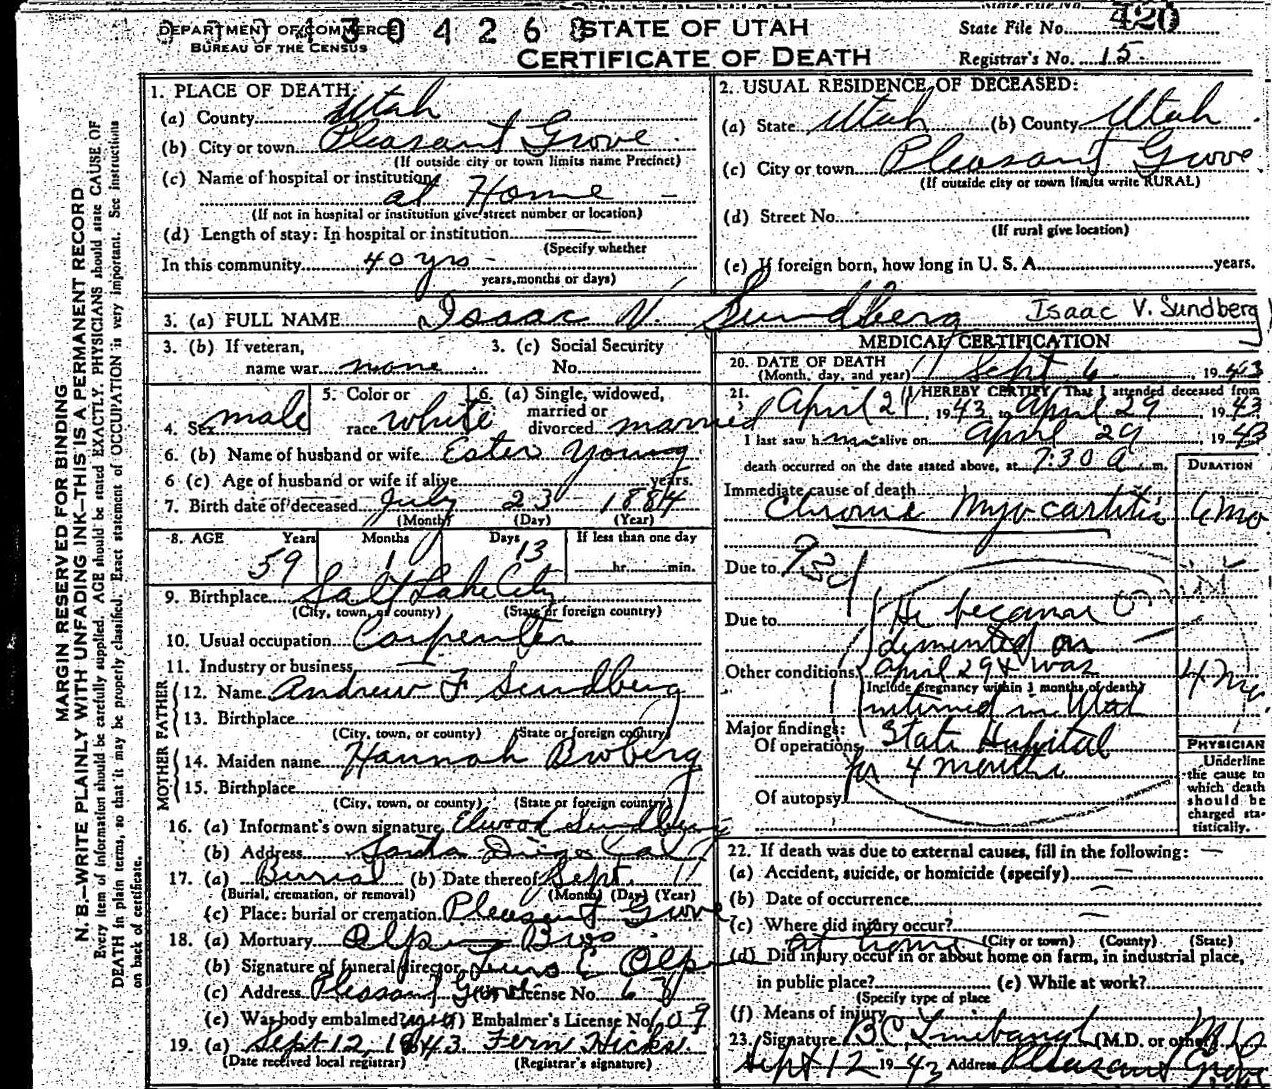 DEPARTMENT OF COMMERCE
BUREAU OF THE CENSUS
STATE OF UTAH
CERTIFICATE OF DEATH
State File No. 420
Registrar's No. 15
MARGIN RESERVED FOR BINDING
N. B.—WRITE PLAINLY WITH UNFADING INK—THIS IS A PERMANENT RECORD
Every item of information should be carefully supplied. AGE should be stated EXACTLY. PHYSICIANS should state CAUSE OF
DEATH in plain terms, so that it may be properly classified. Exact statement of OCCUPATION is very important. See instructions
on back of certificate.
1. PLACE OF DEATH:
(a) County Utah
(b) City or town Pleasant Grove
(If outside city or town limits name Precinct)
(c) Name of hospital or institution
at Home
(If not in hospital or institution give street number or location)
(d) Length of stay: In hospital or institution
(Specify whether
In this community 40 yrs
years, months or days)
2. USUAL RESIDENCE OF DECEASED:
(a) State Utah (b) County Utah
(c) City or town Pleasant Grove
(If outside city or town limits write RURAL)
(d) Street No.
(If rural give location)
(e) If foreign born, how long in U. S. A. years.
3. (a) FULL NAME Isaac V. Sundberg Isaac V. Sundberg
3. (b) If veteran, name war none
3. (c) Social Security No.
4. Sex male
5. Color or race white
6. (a) Single, widowed, married or divorced married
6. (b) Name of husband or wife Ester Young
6 (c) Age of husband or wife if alive years.
7. Birth date of deceased July 23 1884
(Month) (Day) (Year)
8. AGE Years Months Days If less than one day
59 1 13 hr. min.
9. Birthplace Salt Lake City
(City, town, or county) (State or foreign country)
10. Usual occupation Carpenter
11. Industry or business
FATHER
12. Name Andrew F Sundberg
13. Birthplace
(City, town, or county) (State or foreign country)
MOTHER
14. Maiden name Hannah Broberg
15. Birthplace
(City, town, or county) (State or foreign country)
16. (a) Informant's own signature Elwood Sundberg
(b) Address Cal
17. (a) Burial (b) Date thereof Sept. 11
(Burial, cremation, or removal) (Month) (Day) (Year)
(c) Place: burial or cremation Pleasant Grove
18. (a) Mortuary Bros.
(b) Signature of funeral director E
(c) Address Pleasant Grove License No.
(e) Was body embalmed? Embalmer's License No.
19. (a) Sept 12 1943 Fern Hicks
(Date received local registrar) (Registrar's signature)
MEDICAL CERTIFICATION
20. DATE OF DEATH
(Month, day, and year) Sept 6 1943
21. I HEREBY CERTIFY, That I attended deceased from
April 21, 1943 to April 29 1943
I last saw him alive on April 29 1943
death occurred on the date stated above, at 7:30 a. m.
DURATION
Immediate cause of death
Chronic Myocartitis 6 mo
Due to 93d
Due to He became
demented on
Other conditions April 29 & was 4 mo
(Include pregnancy within 3 months of death)
interned in Utah
Major findings:
Of operations State Hospital
for 4 months
Of autopsy
PHYSICIAN
Underline
the cause to
which death
should be
charged sta-
tistically.
22. If death was due to external causes, fill in the following:
(a) Accident, suicide, or homicide (specify)
(b) Date of occurrence
(c) Where did injury occur?
at home (City or town) (County) (State)
(d) Did injury occur in or about home on farm, in industrial place,
in public place? (e) While at work?
(Specify type of place
(f) Means of injury
23. Signature BC (M.D. or other)
Sept 12 1943 Address Pleasant Grove